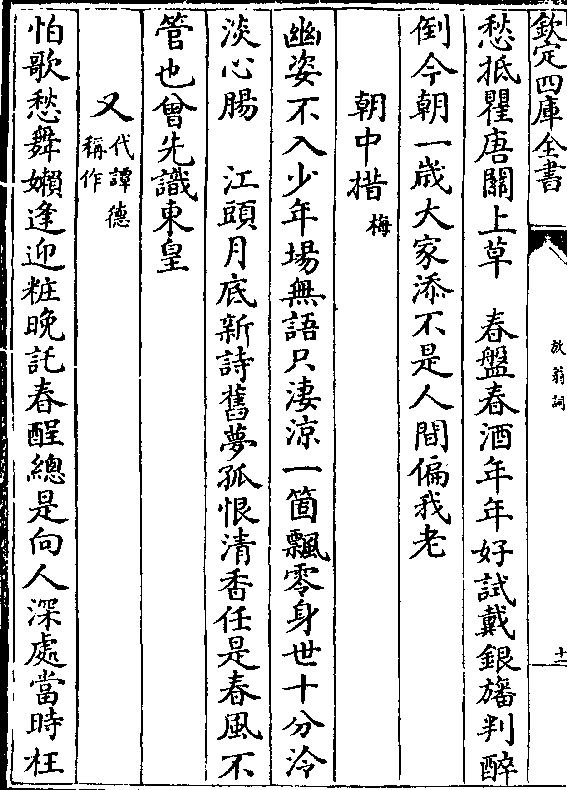 欽定四庫全書
放翁詞
十一
愁抵瞿唐關上草　春盤春酒年年好試戴銀旛判醉
倒今朝一歳大家添不是人間偏我老
朝中措梅
幽姿不入少年場無語只淒涼一箇飄零身世十分冷
淡心腸　江頭月底新詩舊夢孤恨清香任是春風不
管也曾先識東皇
又代譚德稱作
怕歌愁舞嬾逢迎粧晚託春酲總是向人深處當時枉